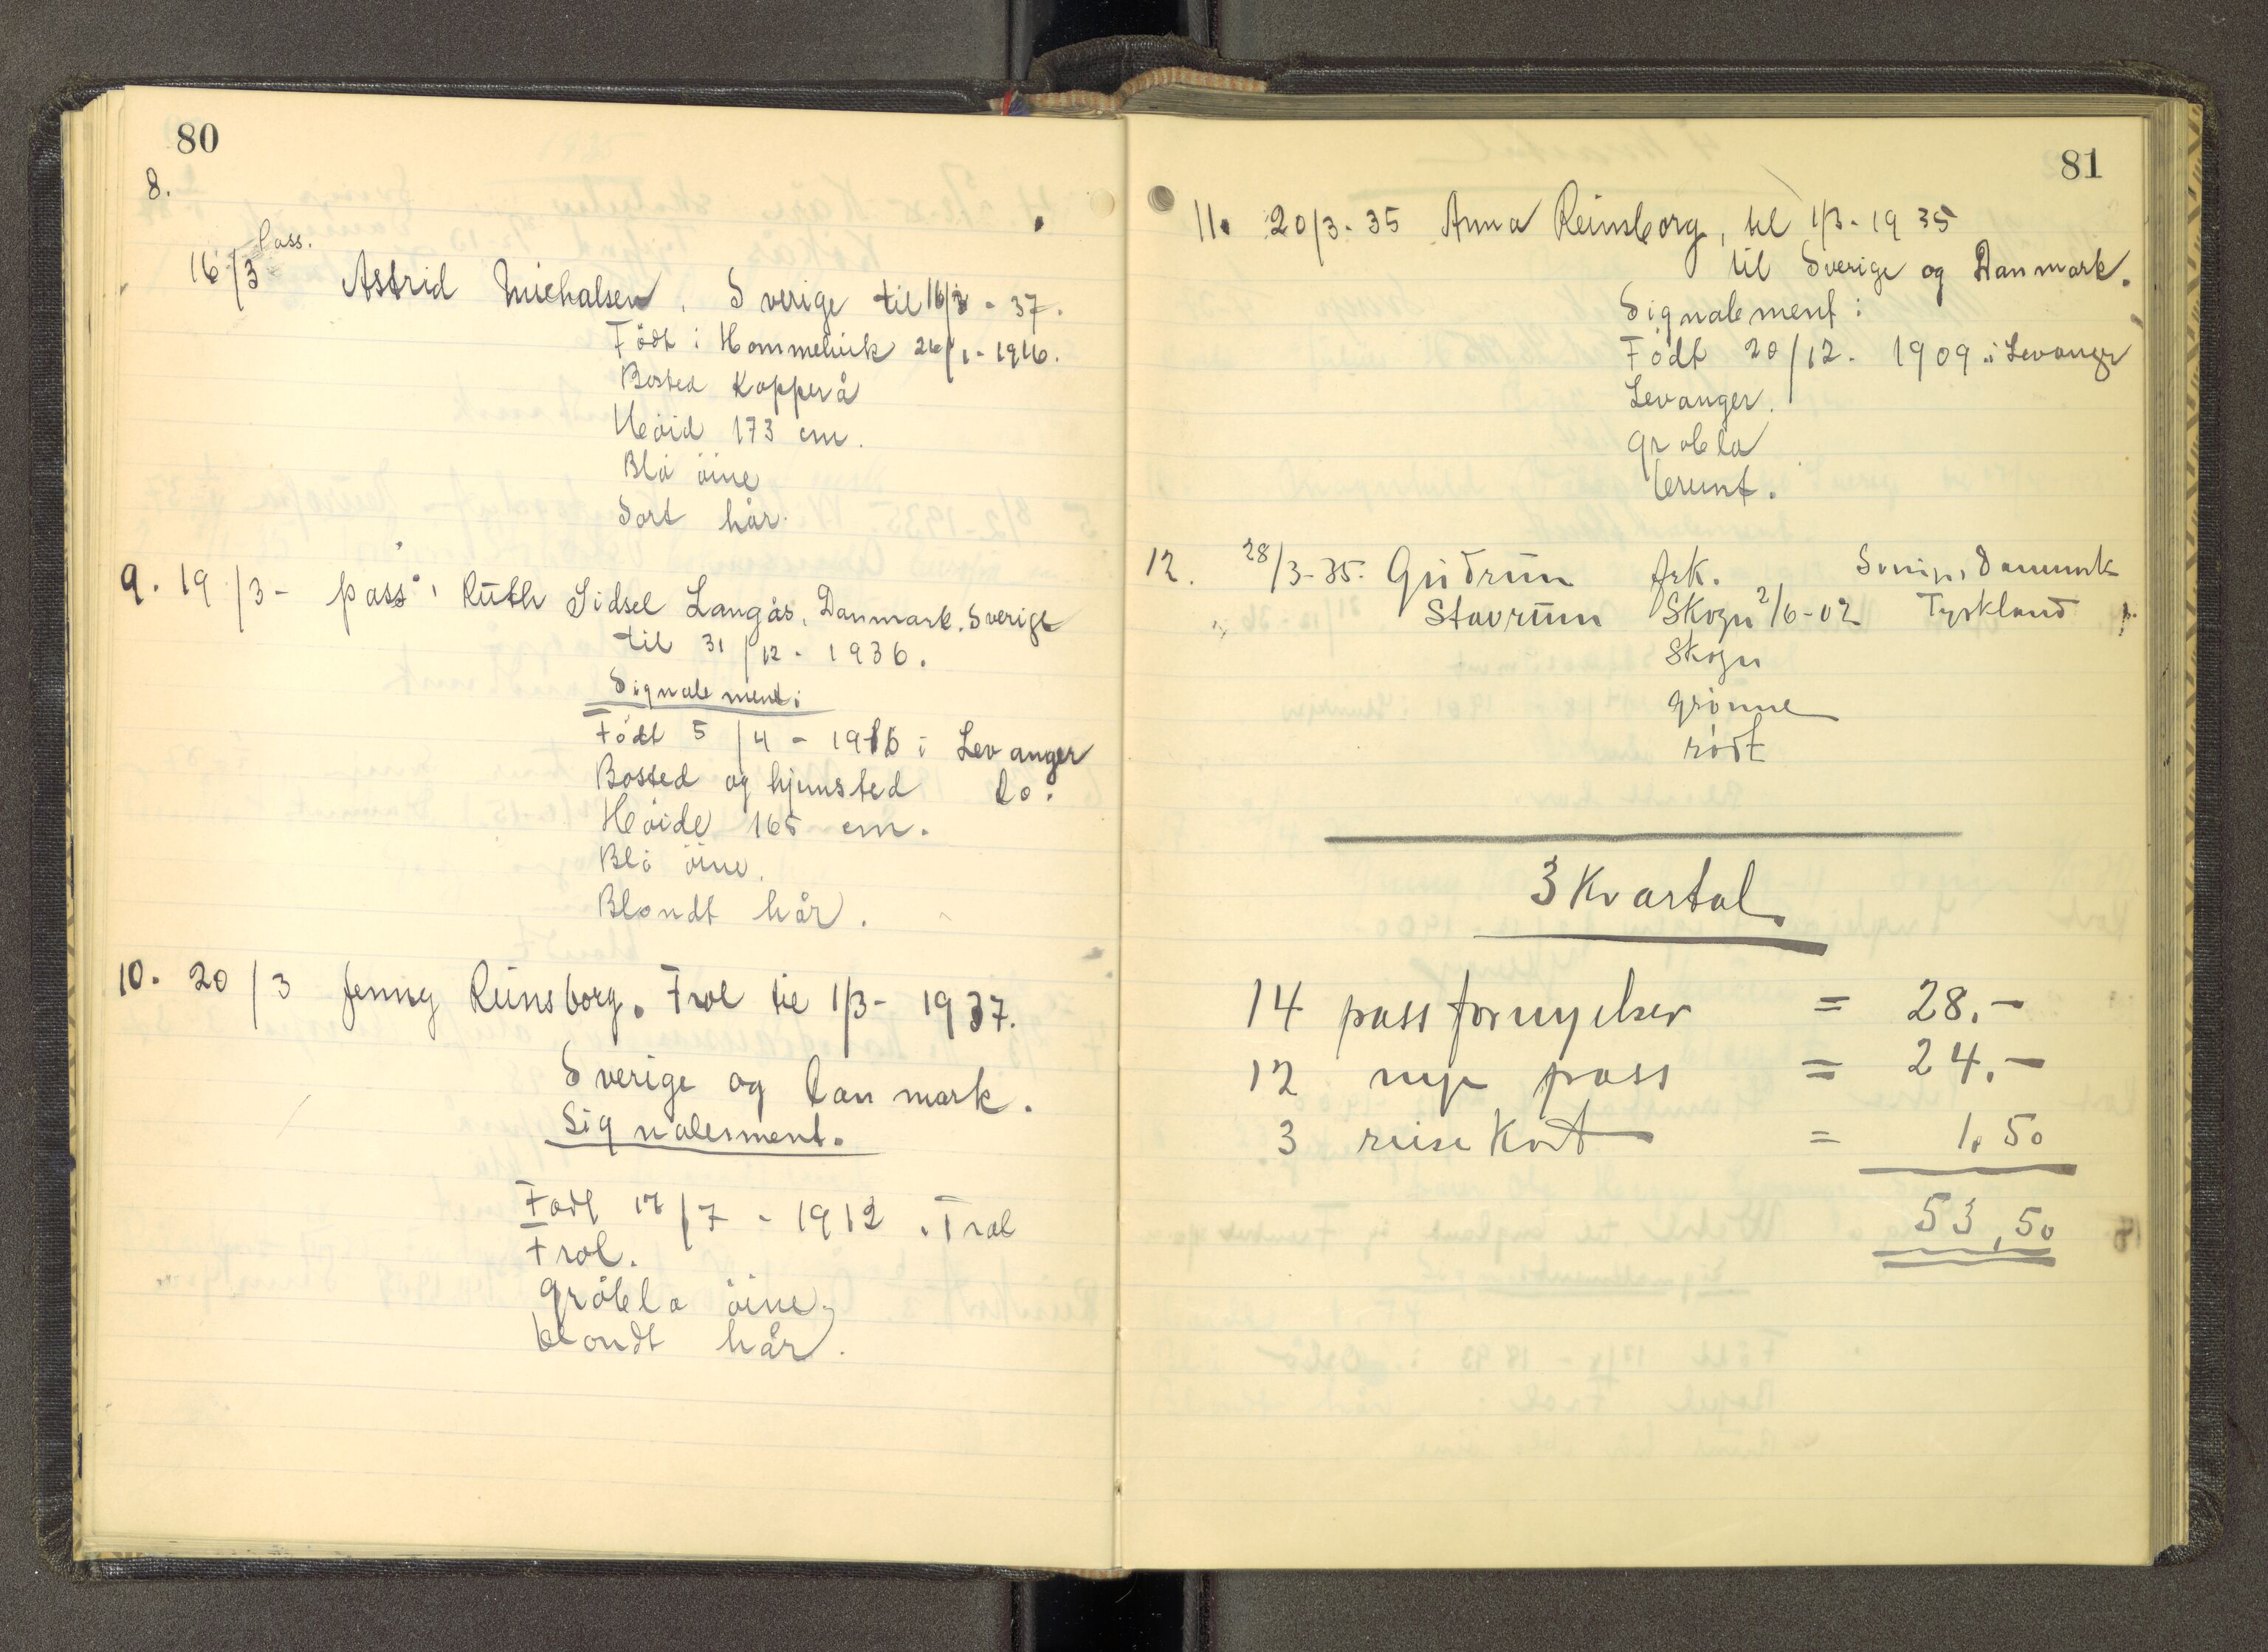 80
8.
Pass.
16/3 Astrid Michalsen, Sverige til 16/3 - 37.
Födt i Hommelvik 26/1 - 1916.
Bosted Kopperå
Höid 173 cm.
Blå öine
Sort hår.
9. 19/3 - pass, Ruth Sidsel Langås, Danmark. Sverige
til 31/12 - 1936.
Signalement:
Födt 5/4 - 1916 i Levanger
Bosted og hjemsted Do.
Höide 165 cm.
Blå öine.
Blondt hår.
10. 20/3 Jenny Reinsborg. Frol til 1/3 - 1937.
Sverige og Danmark.
Signalesment.
Födt 17/7 - 1912 i Frol
Frol.
gråbla öine
blondt hår.
81
11. 20/3 - 35 Anna Reinsborg, til 1/3 - 1935
til Sverige og Danmark.
Signalement:
Födt 20/12 - 1909 i Levanger
Levanger.
gråbla
brunt.
12. 28/3-35. Gudrun frk. Sverige, Danmark
Stavrum Skogn 2/6-02 Tyskland
Skogn
grønne
rødt
3 Kvartal
14 passfornyelser = 28.-
12 nye pass = 24.-
3 reisekort = 1.50
53,50